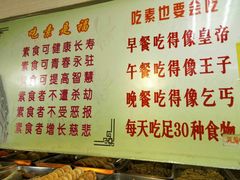 吃素是福
素食可健康长寿
素食可青春永驻
素食可提高智慧
素食者不遭杀劫
素食者不受恶报
素食者增长慈悲
吃素也要会吃
早餐吃得像皇帝
午餐吃得像王子
晚餐吃得像乞丐
每天吃足30种食物